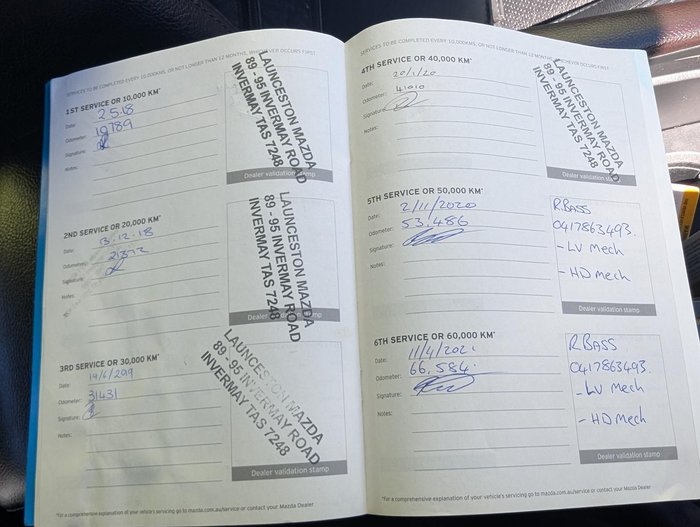 SERVICES TO BE COMPLETED EVERY 10,000KMS, OR NOT LONGER THAN 12 MONTHS, WHICHEVER OCCURS FIRST
1ST SERVICE OR 10,000 KM*
Date: 2.5.18
Odometer: 10789
Signature:
Notes:
LAUNCESTON MAZDA
89 - 95 INVERMAY ROAD
INVERMAY TAS 7248
Dealer validation stamp
2ND SERVICE OR 20,000 KM*
Date: 3.12.18
Odometer:
Signature:
Notes:
LAUNCESTON MAZDA
89 - 95 INVERMAY ROAD
INVERMAY TAS 7248
Dealer validation stamp
3RD SERVICE OR 30,000 KM*
Date:
Odometer: 31431
Signature:
Notes:
LAUNCESTON MAZDA
89 - 95 INVERMAY ROAD
INVERMAY TAS 7248
Dealer validation stamp
*For a comprehensive explanation of your vehicle's servicing go to mazda.com.au/service or contact your Mazda Dealer
SERVICES TO BE COMPLETED EVERY 10,000KMS, OR NOT LONGER THAN 12 MONTHS, WHICHEVER OCCURS FIRST
4TH SERVICE OR 40,000 KM*
Date: 20/1/20
Odometer: 41010
Signature:
Notes:
LAUNCESTON MAZDA
89 - 95 INVERMAY ROAD
INVERMAY TAS 7248
Dealer validation stamp
5TH SERVICE OR 50,000 KM*
Date: 2/11/2020
Odometer: 53.486
Signature:
Notes:
R.BASS
0417863493.
- LV Mech
- HD Mech
Dealer validation stamp
6TH SERVICE OR 60,000 KM*
Date: 11/4/2021
Odometer: 66,584.
Signature:
Notes:
R.BASS
0417863493.
- LV Mech
- HD Mech
Dealer validation stamp
*For a comprehensive explanation of your vehicle's servicing go to mazda.com.au/service or contact your Mazda Dealer